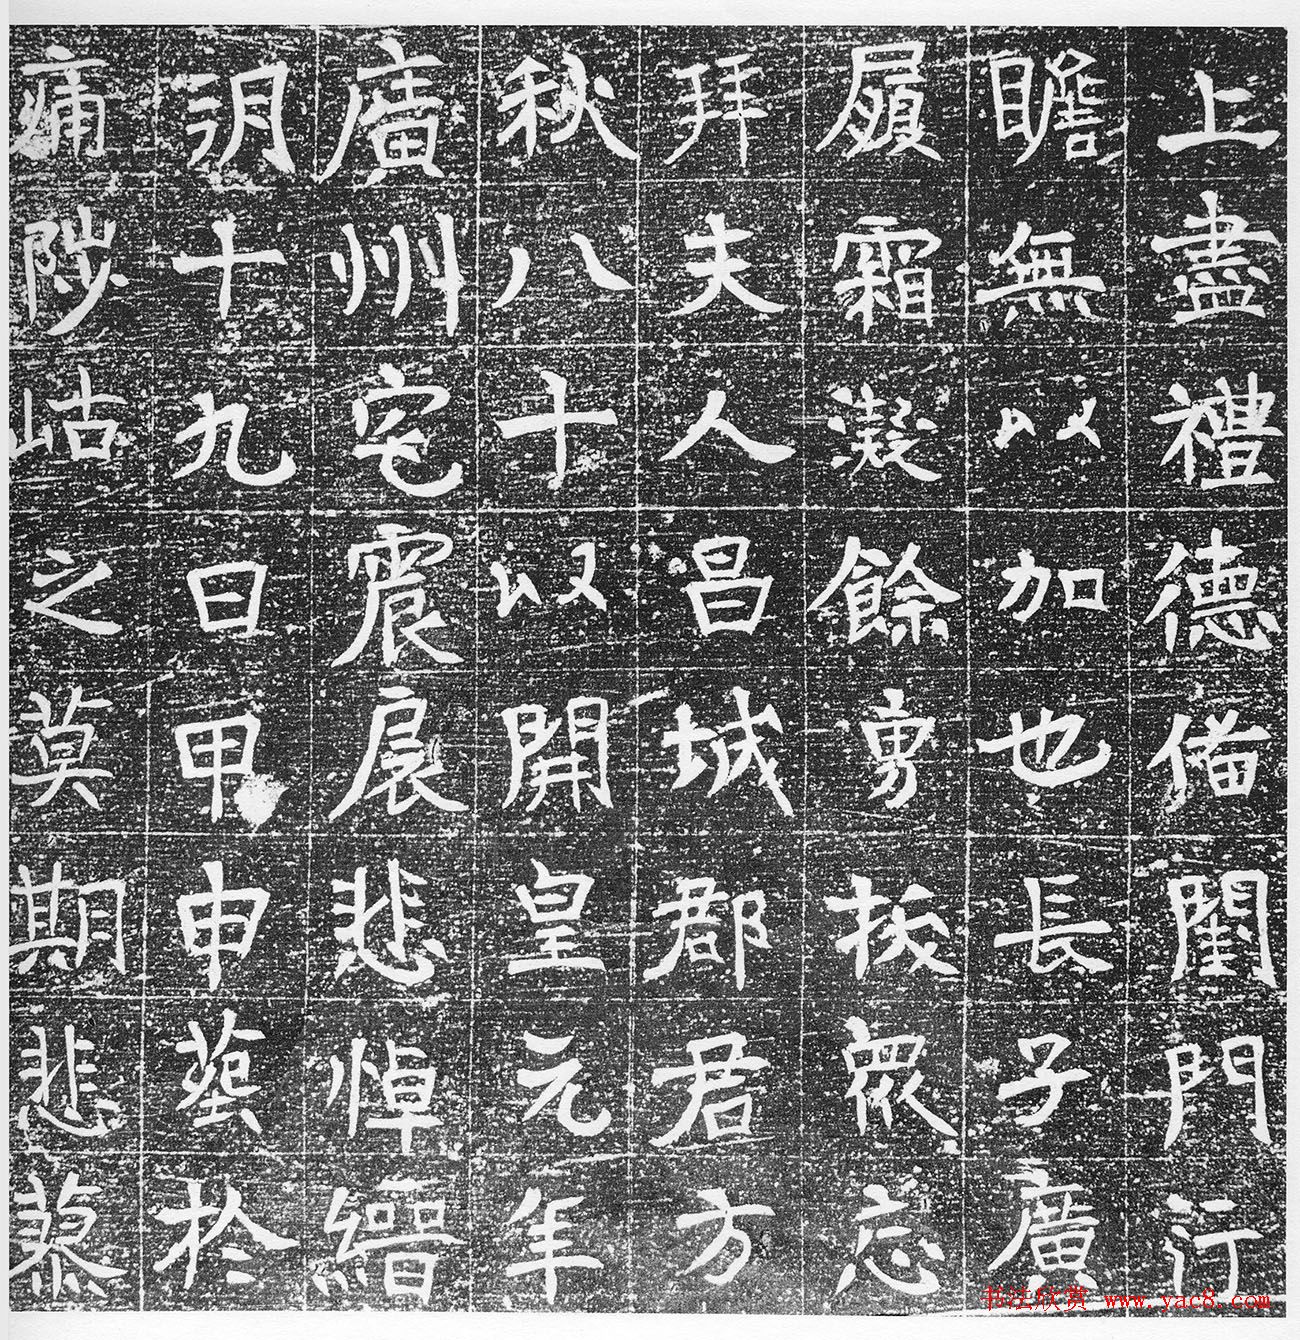 上盡禮德備閨門行
瞻無以加也長子廣
履霜凝餘勇拔衆忘
拜夫人昌城郡君方
秋八十以開皇元年
廣州宅震展悲悼縉
十九日甲申葬於
痛陟岵之莫期悲蓼
书法欣赏 www.yac8.com